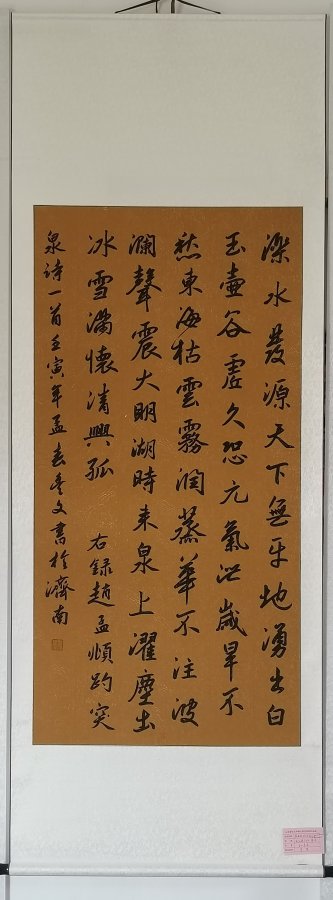 濼水發源天下無平地湧出白
玉壺谷虛久恐元氣泄歲旱不
愁東海枯雲霧潤蒸華不注波
瀾聲震大明湖時来泉上濯塵土
冰雪滿懷清興孤 右錄趙孟頫趵突
泉詩一首壬寅年孟春文書於濟南